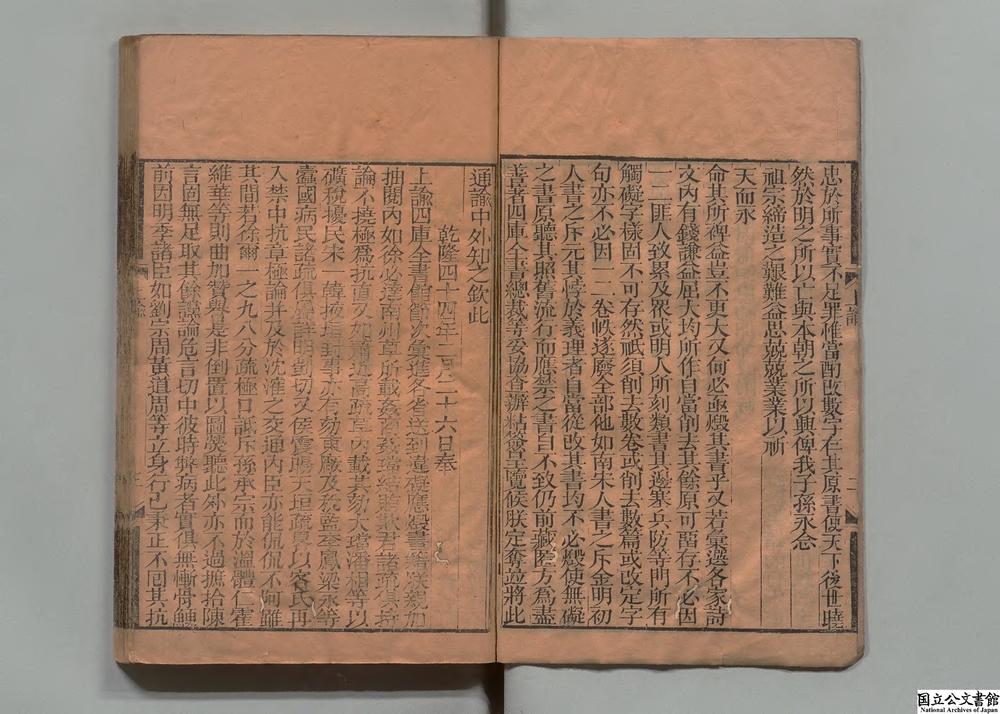 忠於所事實不足罪惟當酌改數字在其原書使天下後世曉
然於明之所以亡與本朝之所以興俾我子孫永念
祖宗締造之艱難益思兢兢業業以祈
天而永
命其所裨益豈不更大又何必亟燬其書乎又若彙選各家詩
文內有錢謙益屈大均所作自當削去其餘原可留存不必因
一二匪人致累及衆或明人所刻類書其邊塞兵防等門所有
觸礙字樣固不可存然祇須削去數卷或削去數篇或改定字
句亦不必因一二卷帙遂廢全部他如南宋人書之斥金明初
人書之斥元其悖於義理者自當從改其書均不必燬使無礙
之書原聽其照舊流行而應禁之書自不致仍前藏匿方為盡
善著四庫全書總裁等妥協查辦粘簽呈覽候朕定奪並將此
通諭中外知之欽此
乾隆四十四年二月二十六日奉
上諭四庫全書館節次彙進各省送到違礙應燬書籍朕親加
抽閱內如徐必達南州草所載
論不撓極為抗直又如蕭近高疏草內載其劾大璫潘相等以
礦稅擾民宋一韓掖垣封事亦有劾東廠及稅監李鳳梁永等
蠹國病民諸疏俱屬詳明剴切又侯震暘天垣疏畧以客氏再
入禁中抗章極論并及於沈㴶之交通內臣亦能侃侃不阿雖
其間若徐爾一之九八分疏極口詆斥孫承宗而於溫體仁霍
維華等則曲加贊與是非倒置以圖熒聽此外亦不過摭拾陳
言固無足取其餘讜論危言切中彼時弊病者實俱無慚骨鯁
前因明季諸臣如劉宗周黃道周等立身行己秉正不回其抗
上諭
國立公文書館
National Archives of Japan